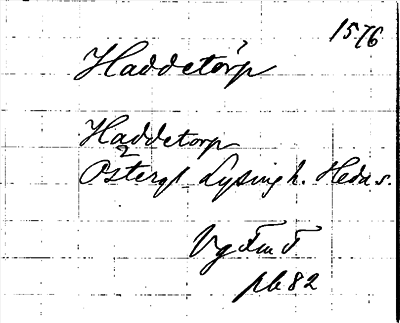 1576
Haddetorp
Haddetorp
2
Östergl Lysing h. Heda s.
VgFmT
sk 82